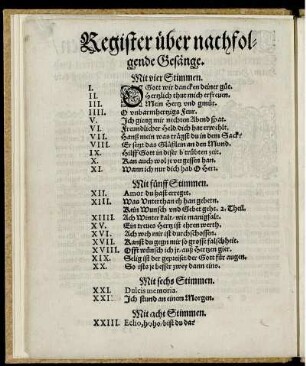 Register über nachfol-
gende Gesänge.
Mit vier Stimmen.
I. O Gott wir dancken deiner güt.
II. Hertzlich thut mich erfreuen.
III. Mein Hertz und gmüt.
IIII. O unbarmhertzigs
V. Ich gieng mir nechten Abend spat.
VI. Freundtlicher Held dich hat erwehlt.
VII. Hans mein was trägst du in dem Sack?
VIII. Er setzt das Gläßlein an den Mund.
IX. Hilff Gott in diser betrübten zeit.
X. Kan auch wol je vergessen han.
XI. Wann ich nur dich hab O Herr.
Mit fünff Stimmen.
XII. Amor du hast erregt.
XIII. Was Unter than eh han gehern.
Kein Wunsch und Gebet geht. 2. Theil.
XIIII. Ach Winter kalt, wie manigfalt.
XV. Ein treues Hertz ist ehren werth.
XVI. Ach weh mir ist durchschossen.
XVII. Kanst du gegn mir so grosse falschheit.
XVIII. Offt wünsch ich jr auß Hertzen gier.
XIX. Selig ist der gepreiset der Gott für augen.
XX. So ists je besser zwey dann eins.
Mit sechs Stimmen.
XXI. Dulcis memoria.
XXII. Ich stund an einem Morgen.
Mit acht Stimmen.
XXIII. Echo, hoho, bist du da?